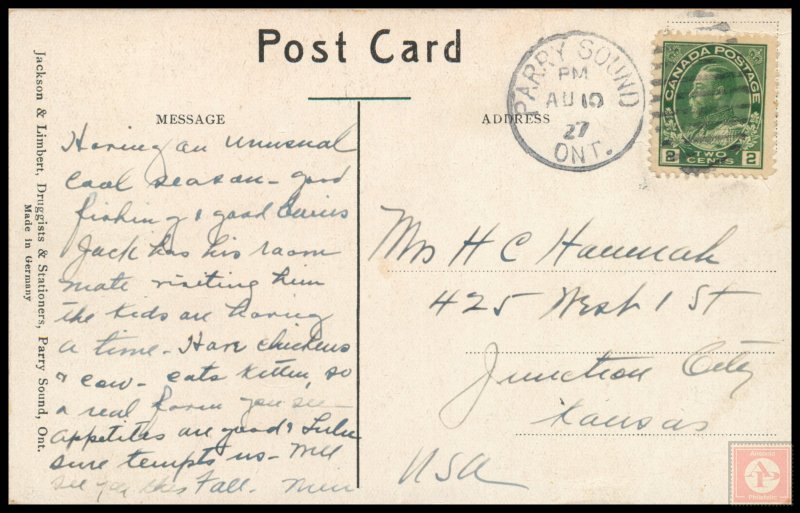 Post Card
MESSAGE
ADDRESS
PARRY SOUND
PM
AU 10
27
ONT.
CANADA POSTAGE
2 TWO CENTS 2
Having an unusual
cool season - good
fishing & good
Jack has his room
mate visiting him
the kids are having
a time - Have chickens
& cow - cats kitten, so
a real farm you see -
appetites are good &
sure tempts us - Will
see you this Fall.
Mrs H C Hannah
425 West 1 St
Junction City
Kansas
USA
Jackson & Limbert, Druggists & Stationers, Parry Sound, Ont.
Made in Germany
Philatelic